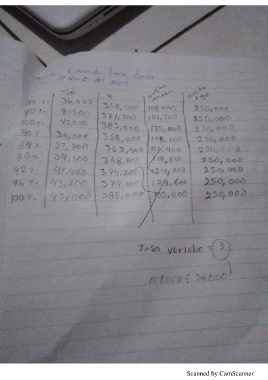 costo variable costo fijo
80% 36,000 358,000 108,000 250,000
90% 40500 371,500 121,500 250,000
100% 45,000 385,000 135,000 250,000
80% 36,000 358,000 108,000 250,000
84% 37,800 363,400 113,400 250,000
88% 39,600 368,800 118,800 250,000
92% 41,400 374,200 124,200 250,000
96% 43,200 379,600 129,600 250,000
100% 45,000 385,000 135,000 250,000
Tasa variable = 3
108000 ÷ 36000
Scanned by CamScanner